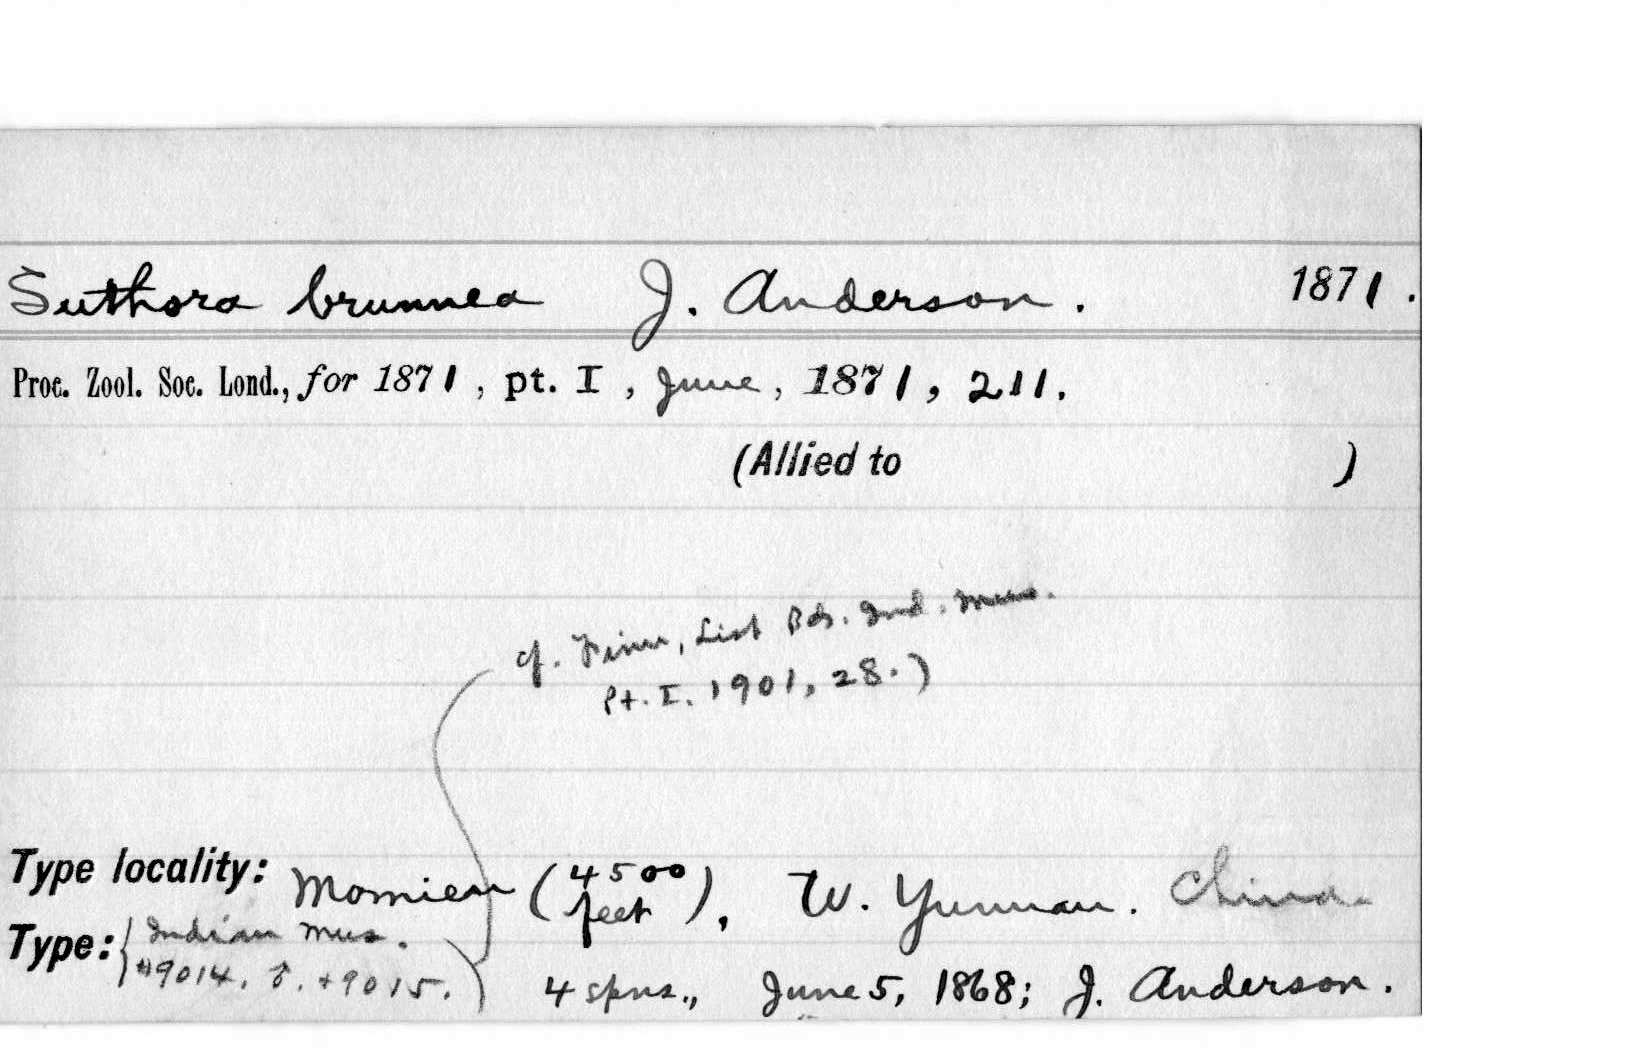 Suthora brunnea J. Anderson. 1871.
Proc. Zool. Soc. Lond., for 1871, pt. I, June, 1871, 211.
(Allied to )
cf. Finn, List Bds. Ind. Mus.
Pt. I. 1901, 28.)
Type locality: Momien (4500 feet), W. Yunnan. China
Type: { Indian Mus.
#9014, ♂. + 9015. ) 4 spns., June 5, 1868; J. Anderson.